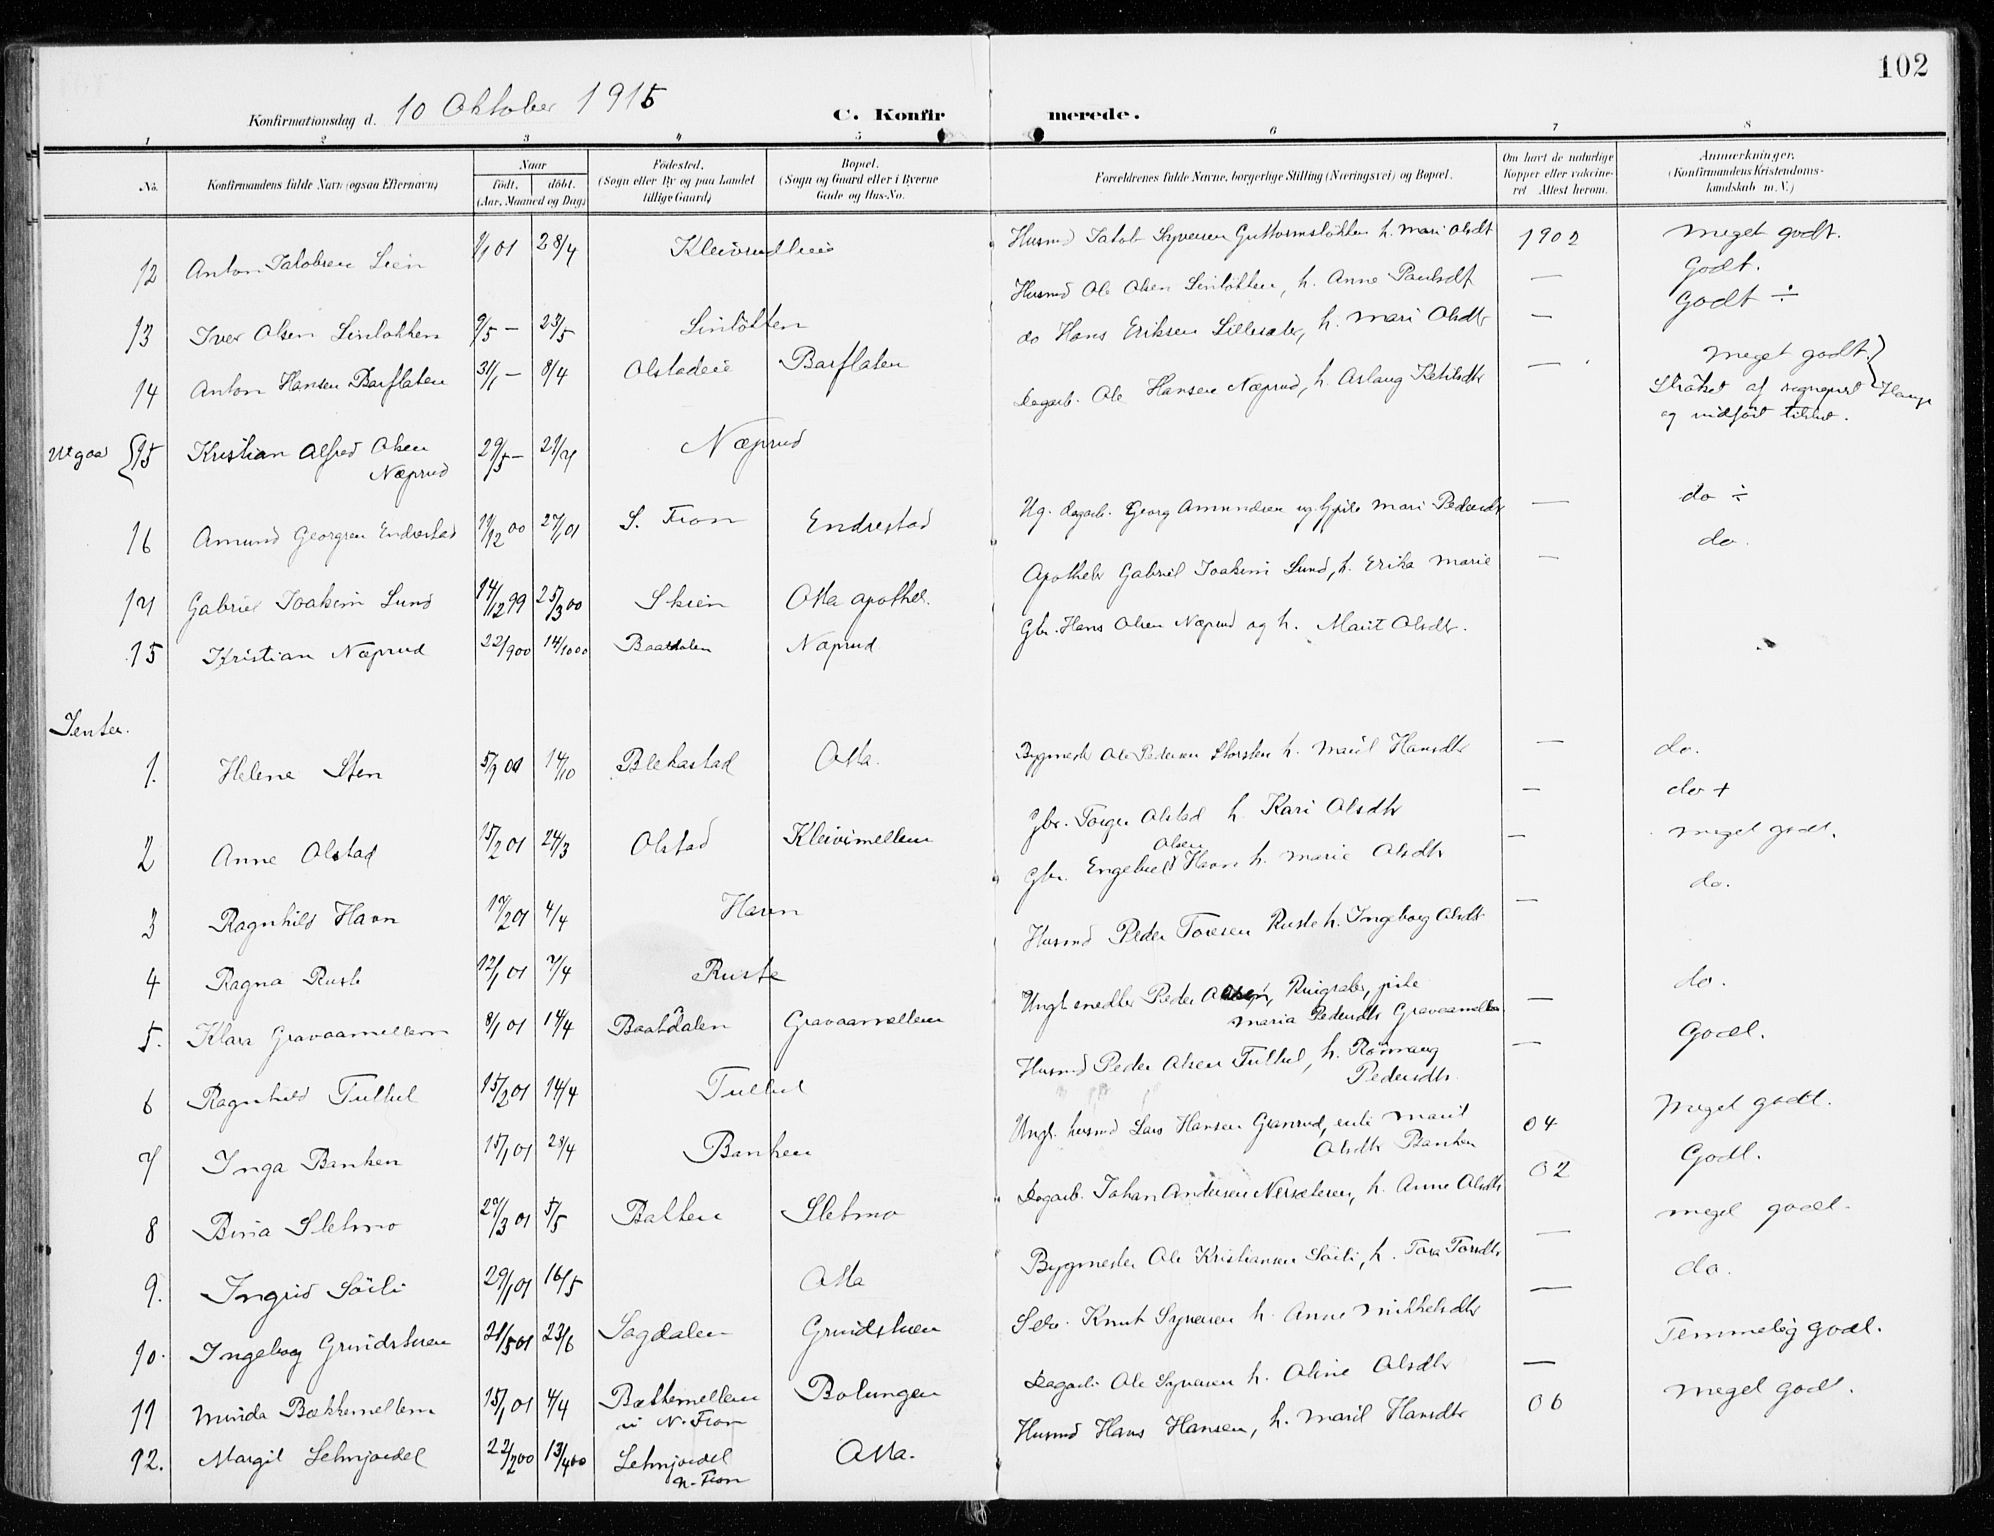 102
Konfirmationsdag d. 10 Oktober 1915
C. Konfirmerede.
1 2 3 4 5 6 7 8
No.
Konfirmandens fulde Navn (ogsaa Efternavn)
Naar
født. døbt.
(Aar, Maaned og Dag)
Fødested.
(Sogn eller By og paa Landet
tillige Gaard)
Bopæl.
(Sogn og Gaard eller i Byerne
Gade og Hus-No.
Forældrenes fulde Navne, borgerlige Stilling (Næringsvei) og Bopæl.
Om havt de naturlige
Kopper eller vakcine-
ret Attest herom.
Anmerkninger.
(Konfirmandens Kristendoms-
kundskab m. V.)
12 Anton Jakobsen Lien 9/1 01 28/4 Kleivrudheie Husmd Jakob Syversen Guttormsløkken h. Mari Olsdt 1902 Meget godt.
13 Iver Olsen Linløkken 9/5 — 23/5 Linløkken Husmd Ole Olsen Linløkken, h. Anne Paulsdt — Godt.
14 Anton Hansen Barflaten 31/1 — 8/4 Olstadeie Barflaten do Hans Eriksen Lillesæter, h. Mari Olsdtr — Godt ÷
Utgaar {15 Kristian Alfred Olsen
Næprud 29/5 — 21/7 Næprud Dagarb. Ole Hansen Næprud, h. Aslaug Ketilsdtr — Meget godt.}
Strøket af
og
16 Amund Georgsen Endrestad 19/12 00 27/1 01 S. Fron Endrestad Ug. dagarb. Georg Amundsen og Gjpike Mari Pedersdtr — do ÷
17 Gabriel Joakim Lund 14/12 99 25/3 00 Skien Otta apothek. Apotheker Gabriel Joakim Lund, h. Erika Marie — do.
15 Kristian Næprud 22/9 00 14/10 00 Baatdalen Næprud Gbr. Hans Olsen Næprud og h. Marit Olsdtr.
Jenter.
1. Helene Sten 5/9 00 14/10 Blekastad Otta. Bygmester Ole Pedersen Storsten h. Marit Hansdtr — do.
2 Anne Olstad 15/2 01 24/3 Olstad Kleivimellem Gbr. Torger Olstad h. Kari Olsdtr — do +
3 Ragnhild Havn 17/2 01 4/4 Havn Gbr. Engebret Olsen Havn h. Marie Olsdtr — meget godt.
4 Ragna Ruste 12/1 01 7/4 Ruste Husmd Peder Toresen Ruste h. Ingeborg Olsdt — do.
5. Klara Gravaamellem 8/1 01 14/4 Baatdalen Gravaamellem Ungk. snedker Peder Olsen, Ruigraber, pike
Maria Pedersdtr Gravaamellem — do.
6 Ragnhild Tullul 15/2 01 14/4 Tullul Husmd Peder Olsen Tullul, h. Rønnaug
Pedersdtr. — Godt.
7 Inga Banken 15/1 01 28/4 Banken Ungk. husmd Lars Hansen Granrud, enke Marit
Olsdtr Banken 04 Meget godt.
8 Bina Sletmo 27/3 01 5/5 Bakken Sletmo Dagarb. Johan Andersen Nersæteren, h. Anne Olsdtr 02 Godt.
9. Ingrid Søili 29/1 01 16/5 Otta Bygmester Ole Kristiansen Søili, h. Tora Torsdtr — meget godt.
10. Ingeborg Grindstuen 21/5 01 23/6 Sagdalen Grindstuen Selv. Knut Syversen h. Anne Mikkelsdtr — do.
11 Minda Bækkemellem 15/1 01 4/4 Bækkemellem
i N. Fron Bolungen Dagarb. Ole Syversen h. Oline Olsdtr — Temmelig godt.
12. Margit Lehnjordet 22/2 00 13/4 00 Lehnjordet
N. Fron Otta. Husmd Hans Hansen, h. Marit Hansdtr 06 Meget godt.